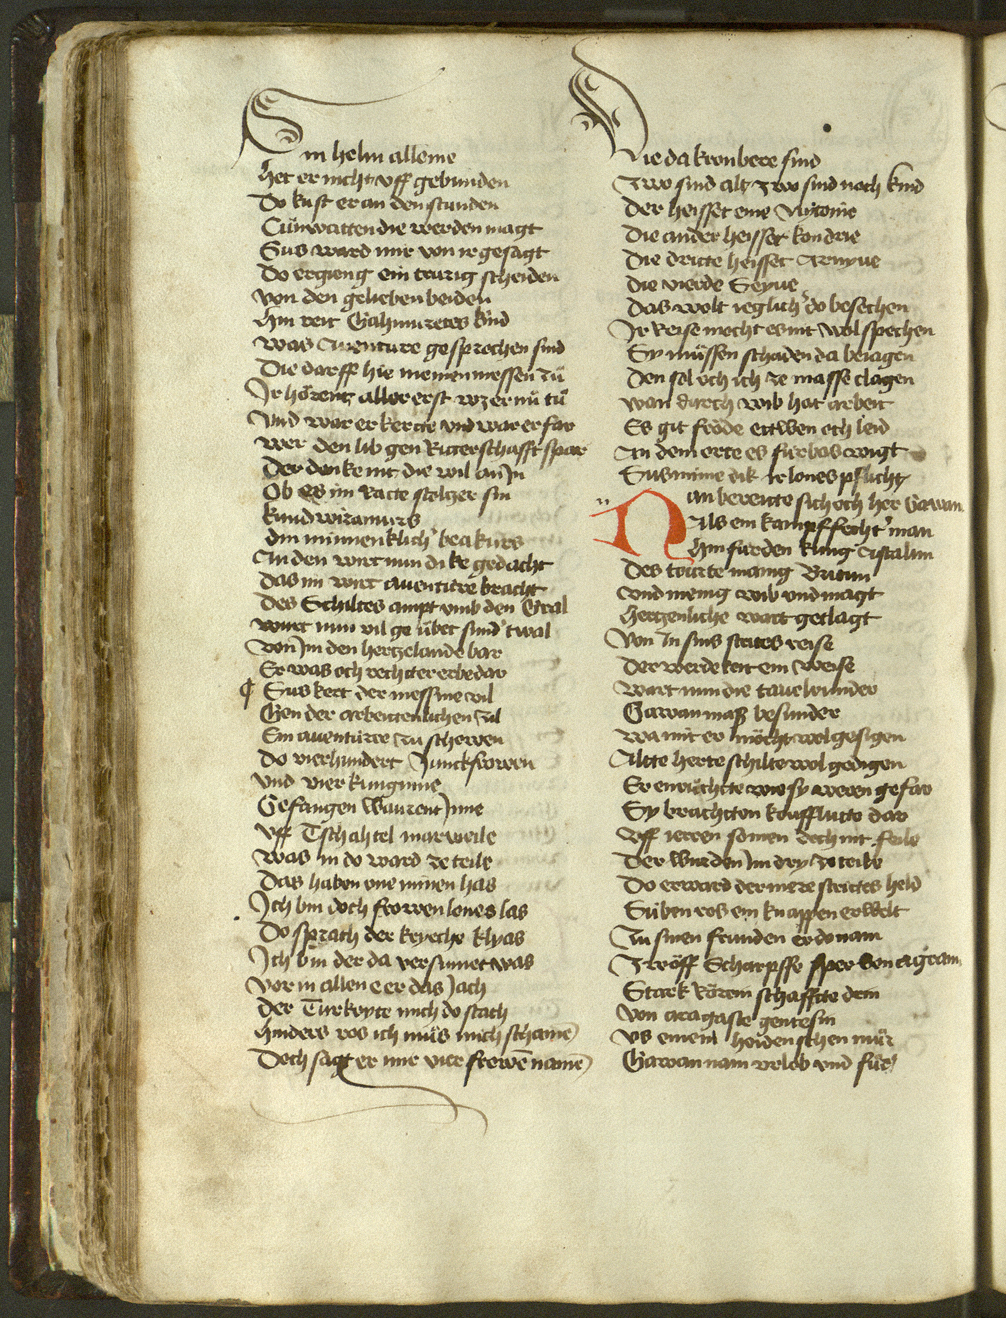 Sin helm alleine
Het er nicht vff gebunden
Do kust er an den stunden
Cůnwatten die werden magt
Sus ward mir von ir gesagt
Do ergieng ein trurig scheiden
Von den gelieben beiden
Hin reit Gahmuretes kind
Was auenture gesprochen sind
Die darff hie niemen messen zů
Ir hörent aller erst wz er nů tů
Vnd war er kerte vnd war er far
Wer den lib gen Ritterschafft spar
Der denke nit die wil an Jn
Ob es im ratte steltzer sin
Kund wiramurs
Din minnenklich beakurs
An den wirt nun dike gedacht
Das im wirt auenture bracht
Des Schiltes ampt vmb den Gral
Wirt nun vil ge übet sunder twal
Von Jm den hertzelande bar
Er was och rechter erbe dar
¶ Sus kert der messine vil
Gen der arbeitenlichen zil
Ein auenture zu schowen
Do vierhundert Junckfrowen
Vnd vier kunginne
Gefangen waurent Jnne
Vff Tschahtel marweile
Was in do ward ze teile
Das haben one minen has
Ich bin doch frowen lones las
Do sprach der krieche klyas
Ich bin der da versumet was
Vor in allen e er das Jach
Der Turkoyte mich do stach
Hinders ros ich můs mich schame
Doch sagt er mir vier frowē name
Die da kronbere sind
Zwo sind alt zwo sind noch kind
Der heisset eine Ytonie
Die ander heisset kondrie
Die dritte heisset Arnyue
Die vierde Seyue
Das wolt ieglicher do besechen
Ir reise mocht es nit wol spechen
Sy müssen schaden da beiagen
Den sol och ich ze masse clagen
Wan durch wib hat arbeit
Es git fröde ettwen och leid
An dem orte es fürbas wigt
Sus mine dik ir lones pflicht
Nan bereitte sich och her Gawan
Als ein kampffecht man
Hin für den kung Astalun
Des trurte manig Britun
Vnd menig wib vnd magt
Hertzenliche wart geclagt
Von Jn sins strites reise
Der werdekeit ein weise
Wart nun die tauelrunder
Gawan maß besunder
Wa mit er möcht wol gesigen
Altte herte schilte wol gedigen
Er enrůchtte wie sy weren gefar
Sy brachtton koufflutte dar
Vff ieren somen doch nit feile
Der wurden Jm dry ze teile
Do erward der were strittes held
Süben ros ein knappen erwelt
Zu sinen frunden er do nam
Zwölff Scharpffe sper von agram
Stark rörein schafftte dem
Von oragaste gentesin
Vs einem heidenschen můr
Gawan nam vrlob vnd fůr